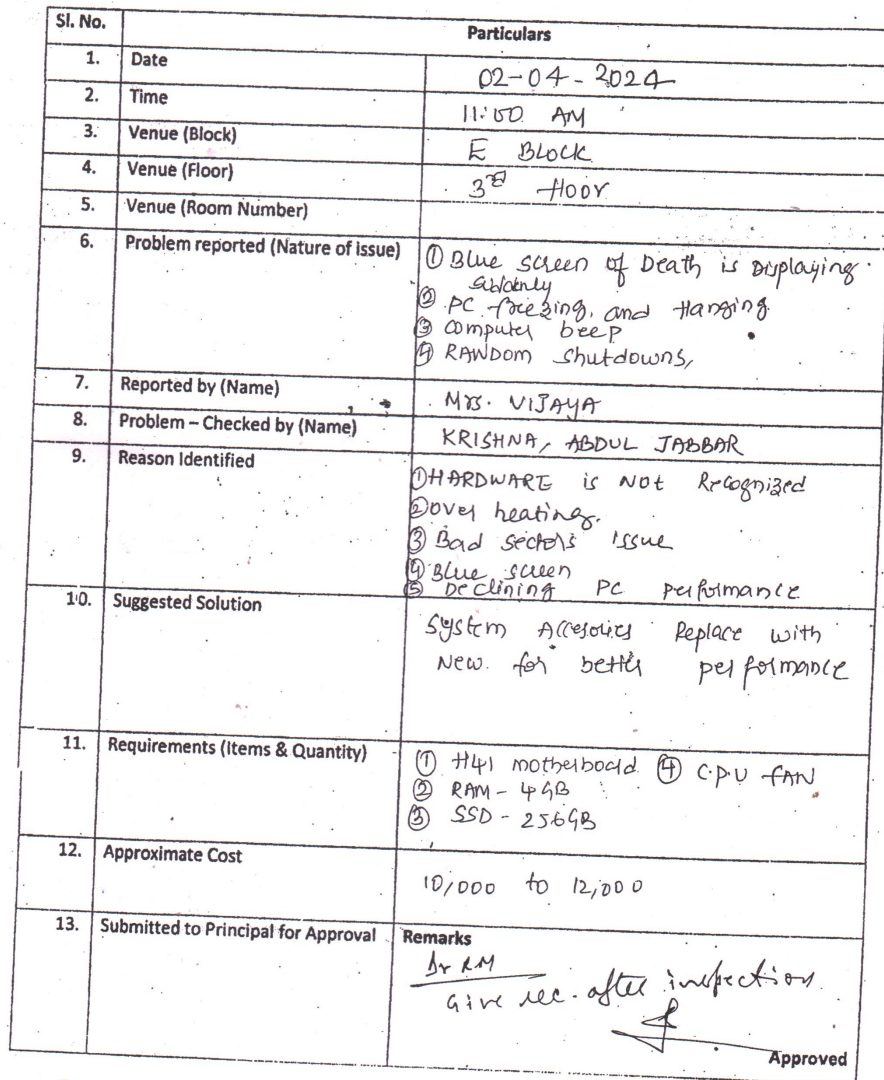 Sl. No. Particulars
1. Date 02-04-2024
2. Time 11:00 AM
3. Venue (Block) E BLOCK
4. Venue (Floor) 3rd floor
5. Venue (Room Number)
6. Problem reported (Nature of issue) ① Blue screen of Death is Displaying
suddenly
② PC freezing, and Hanging
③ computer beep
④ RANDOM shutdowns,
7. Reported by (Name) Mrs. VIJAYA
8. Problem – Checked by (Name) KRISHNA, ABDUL JABBAR
9. Reason Identified ① HARDWARE is NOT Recognized
② over heating.
③ Bad sectors issue
④ Blue screen
⑤ Declining PC performance
10. Suggested Solution System Accesories Replace with
New. for better performance
11. Requirements (Items & Quantity) ① H41 motherboard ④ C.P.U FAN
② RAM - 4GB
③ SSD - 256GB
12. Approximate Cost 10,000 to 12,000
13. Submitted to Principal for Approval Remarks
Dr RM
Give rec. after inspection
Approved